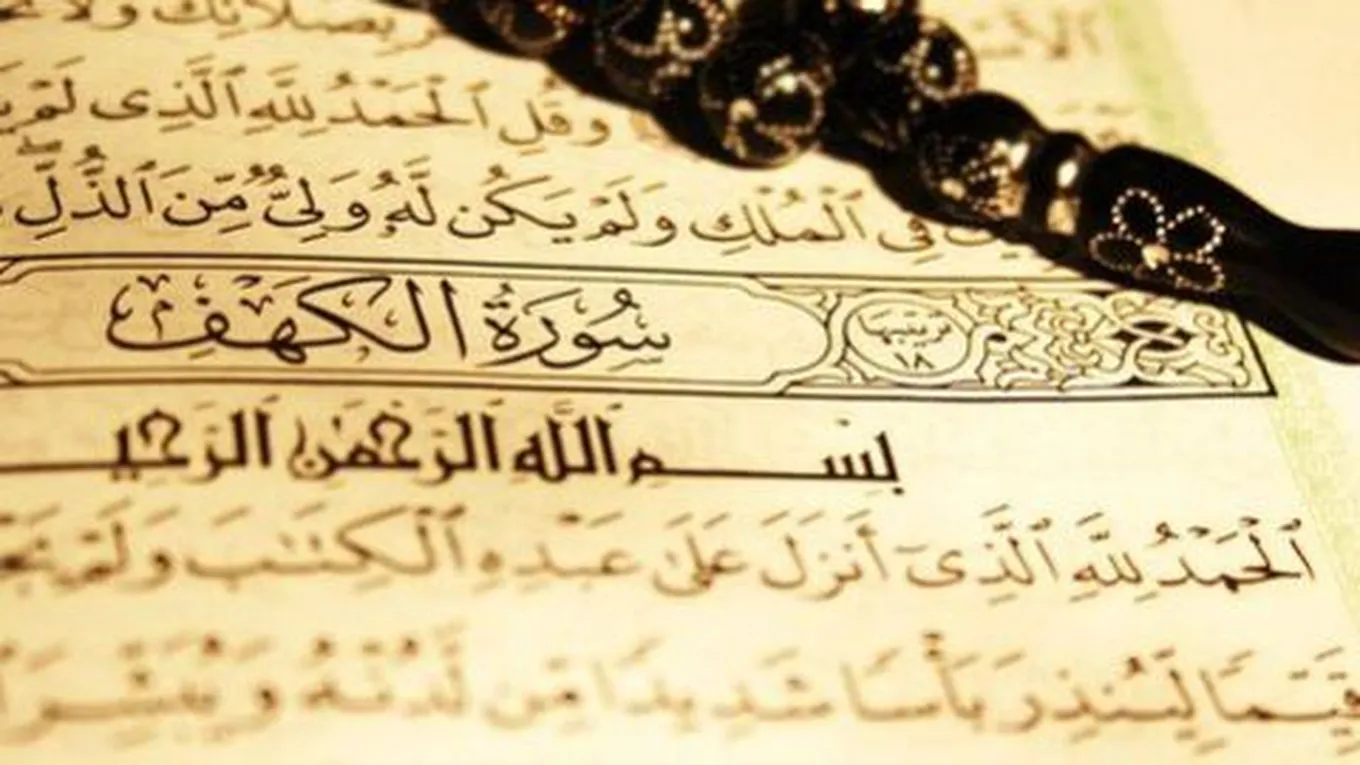 بصلاتك ولا
وَقُلِ ٱلْحَمْدُ لِلَّهِ ٱلَّذِى لَمْ
فِى ٱلْمُلْكِ وَلَمْ يَكُن لَّهُۥ وَلِىٌّ مِّنَ ٱلذُّلِّ
سُورَةُ الكَهْفِ
ترتيبها
١٨
بِسْمِ اللَّهِ الرَّحْمَٰنِ الرَّحِيـ
ٱلْحَمْدُ لِلَّهِ ٱلَّذِىٓ أَنزَلَ عَلَىٰ عَبْدِهِ ٱلْكِتَـٰبَ وَلَمْ
قَيِّمًا لِّيُنذِرَ بَأْسًا شَدِيدًا مِّن لَّدُنْهُ وَيُبَشِّرَ